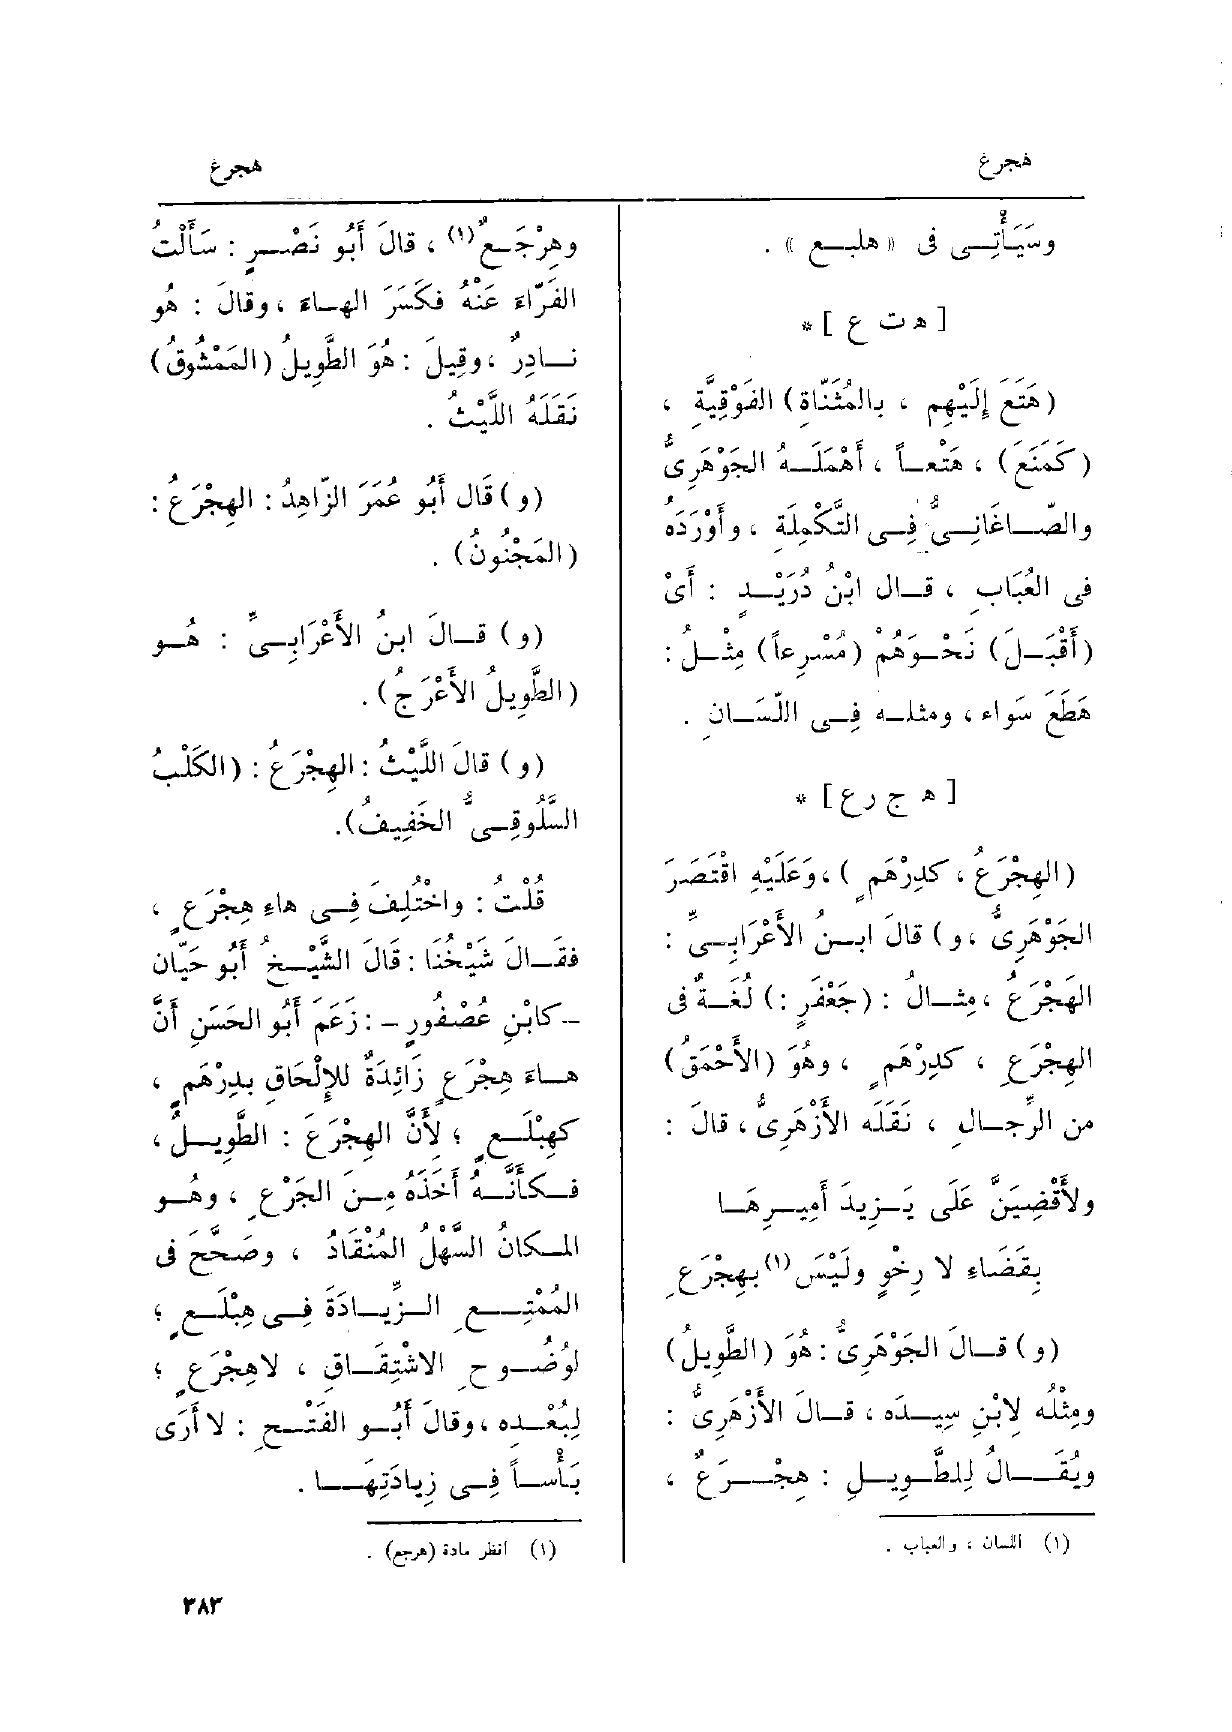 هجرغ
هجرغ
وسَيَأْتِى فى « هلبع » .
[ ه ت ع ] *
(هَتَعَ إِلَيْهِم ، بالمُثَنّاةِ) الفَوْقِيَّةِ ،
(كمَنَعَ) ، هَتْعاً ، أَهْمَلَهُ الجَوْهَرِىُّ
والصّاغَانِىُّ فِى التَّكْمِلَةِ ، وأَوْرَدَهُ
فى العُبَابِ ، قال ابْنُ دُرَيْدٍ : أَىْ
(أَقْبَلَ) نَحْوَهُمْ (مُسْرِعاً) مِثْلُ :
هَطَعَ سَواء ، ومثله فِى اللِّسَان .
[ ه ج ر ع ] *
(الهِجْرَعُ ، كدِرْهَمٍ ) ، وَعَلَيْهِ اقْتَصَرَ
الجَوْهَرِىُّ ، و) قالَ ابنُ الأَعْرَابِىِّ :
الهَجْرَعُ ، مِثالُ : (جَعْفَرٍ :) لُغَةٌ فى
الهِجْرَعِ ، كدِرْهَمٍ ، وهُوَ (الأَحْمَقُ)
من الرِّجالِ ، نَقَلَه الأَزْهَرِىُّ ، قالَ :
ولأَقْضِيَنَّ عَلَى يَزِيدَ أَمِيرِهَا
بِقَضَاءِ لا رِخْوٍ ولَيْسَ (١) بهِجْرَعِ
(و) قالَ الجَوْهَرِىُّ : هُوَ (الطَّوِيلُ)
ومِثْلُه لاِبْنِ سِيدَه ، قالَ الأَزْهَرِىُّ :
ويُقَالُ لِلطَّوِيلِ : هِجْرَعٌ ،
(١) اللسان ، والعباب .
وهِرْجَعٌ (١) ، قالَ أَبُو نَصْرٍ : سَأَلْتُ
الفَرّاءَ عَنْهُ فكَسَرَ الهاءَ ، وقالَ : هُو
نادِرٌ ، وقِيلَ : هُوَ الطَّوِيلُ (المَمْشُوقُ)
نَقَلَهُ اللَّيْثُ .
(و) قَال أَبُو عُمَرَ الزّاهِدُ : الهِجْرَعُ :
(المَجْنُونُ) .
(و) قالَ ابنُ الأَعْرَابِىِّ : هُو
(الطَّوِيلُ الأَعْرَجُ) .
(و) قالَ اللَّيْثُ : الهِجْرَعُ : (الكَلْبُ
السَّلُوقِىُّ الخَفِيفُ) .
قُلْتُ : واخْتُلِفَ فِى هاءِ هِجْرَعٍ ،
فقَالَ شَيْخُنَا : قَالَ الشَّيْخُ أَبُو حَيّان
- كابْنِ عُصْفُورٍ - : زَعَمَ أَبُو الحَسَنِ أَنَّ
هاءَ هِجْرَعٍ زَائِدَةٌ للإِلْحَاقِ بدِرْهَمٍ ،
كهِبْلَعٍ ؛ لأَنَّ الهِجْرَعَ : الطَّوِيلُ ،
فكأَنَّهُ أَخَذَهُ مِنَ الجَرْعِ ، وهُو
المكانُ السَّهْلُ المُنْقَادُ ، وصَحَّحَ فى
المُمْتِعِ الزِّيادَةَ فِى هِبْلَعٍ ؛
لوُضُوحِ الاشْتِقَاقِ ، لاهِجْرَعٍ ؛
لِبُعْدِه ، وقالَ أَبُو الفَتْحِ : لا أَرَى
بَأْساً فِى زِيادَتِهَا .
(١) انظر مادة (هرجع) .
٣٨٣